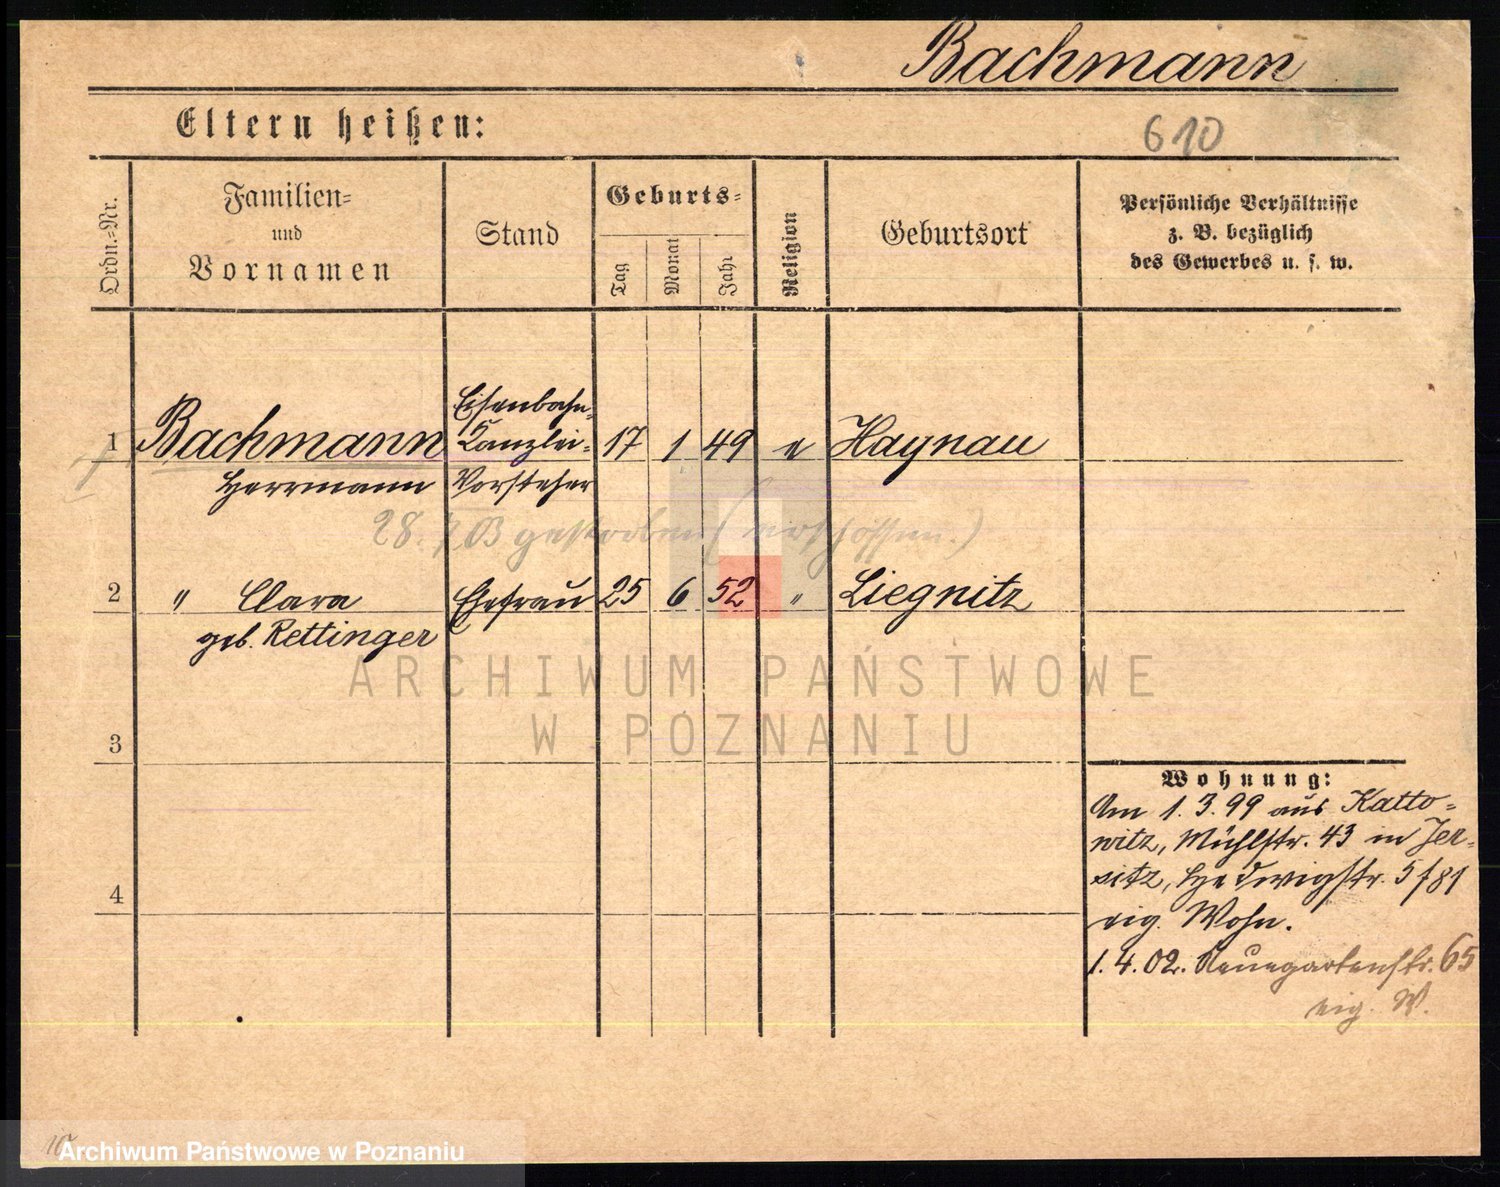 Bachmann
Eltern heißen:
610
Ordn.-Nr.
Familien-
und
Vornamen
Stand
Geburts-
Tag
Monat
Jahr
Religion
Geburtsort
Persönliche Verhältnisse
z. B. bezüglich
des Gewerbes u. s. w.
1 Bachmann Eisenbahn- 17 1 49 e Haynau
Kanzlei-
Herrmann Vorsteher
28. 03 gestorben (erschossen.)
2 " Clara Ehefrau 25 6 52 " Liegnitz
geb. Rettinger
ARCHIWUM PAŃSTWOWE
W POZNANIU
3
4
Wohnung:
Am 1. 3. 99 aus Katto-
witz, Mühlstr. 43 in Jer-
sitz, Hedwigstr. 5 f 81
eig. Wohn.
1. 4. 02. Neuegartenstr. 65
eig. W.
Archiwum Państwowe w Poznaniu